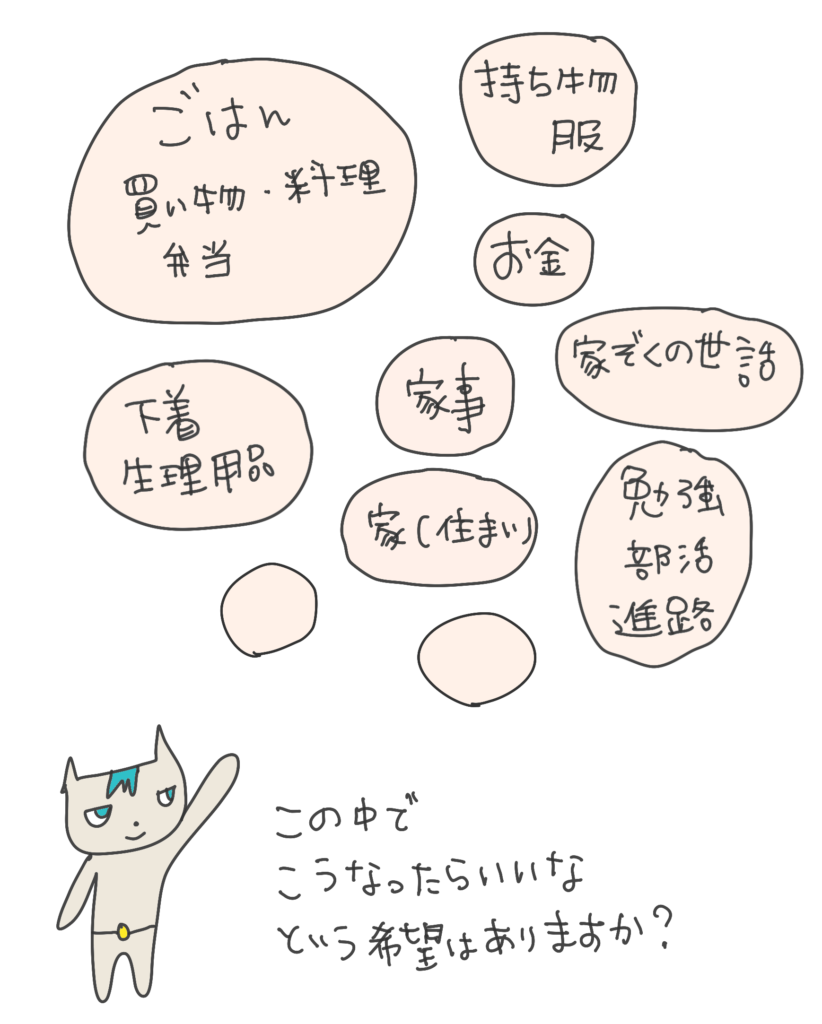 ごはん
買い物・料理
弁当
持ち物
服
お金
家ぞくの世話
家事
下着
生理用品
家(住まい)
勉強
部活
進路
この中で
こうなったらいいな
という希望はありますか?